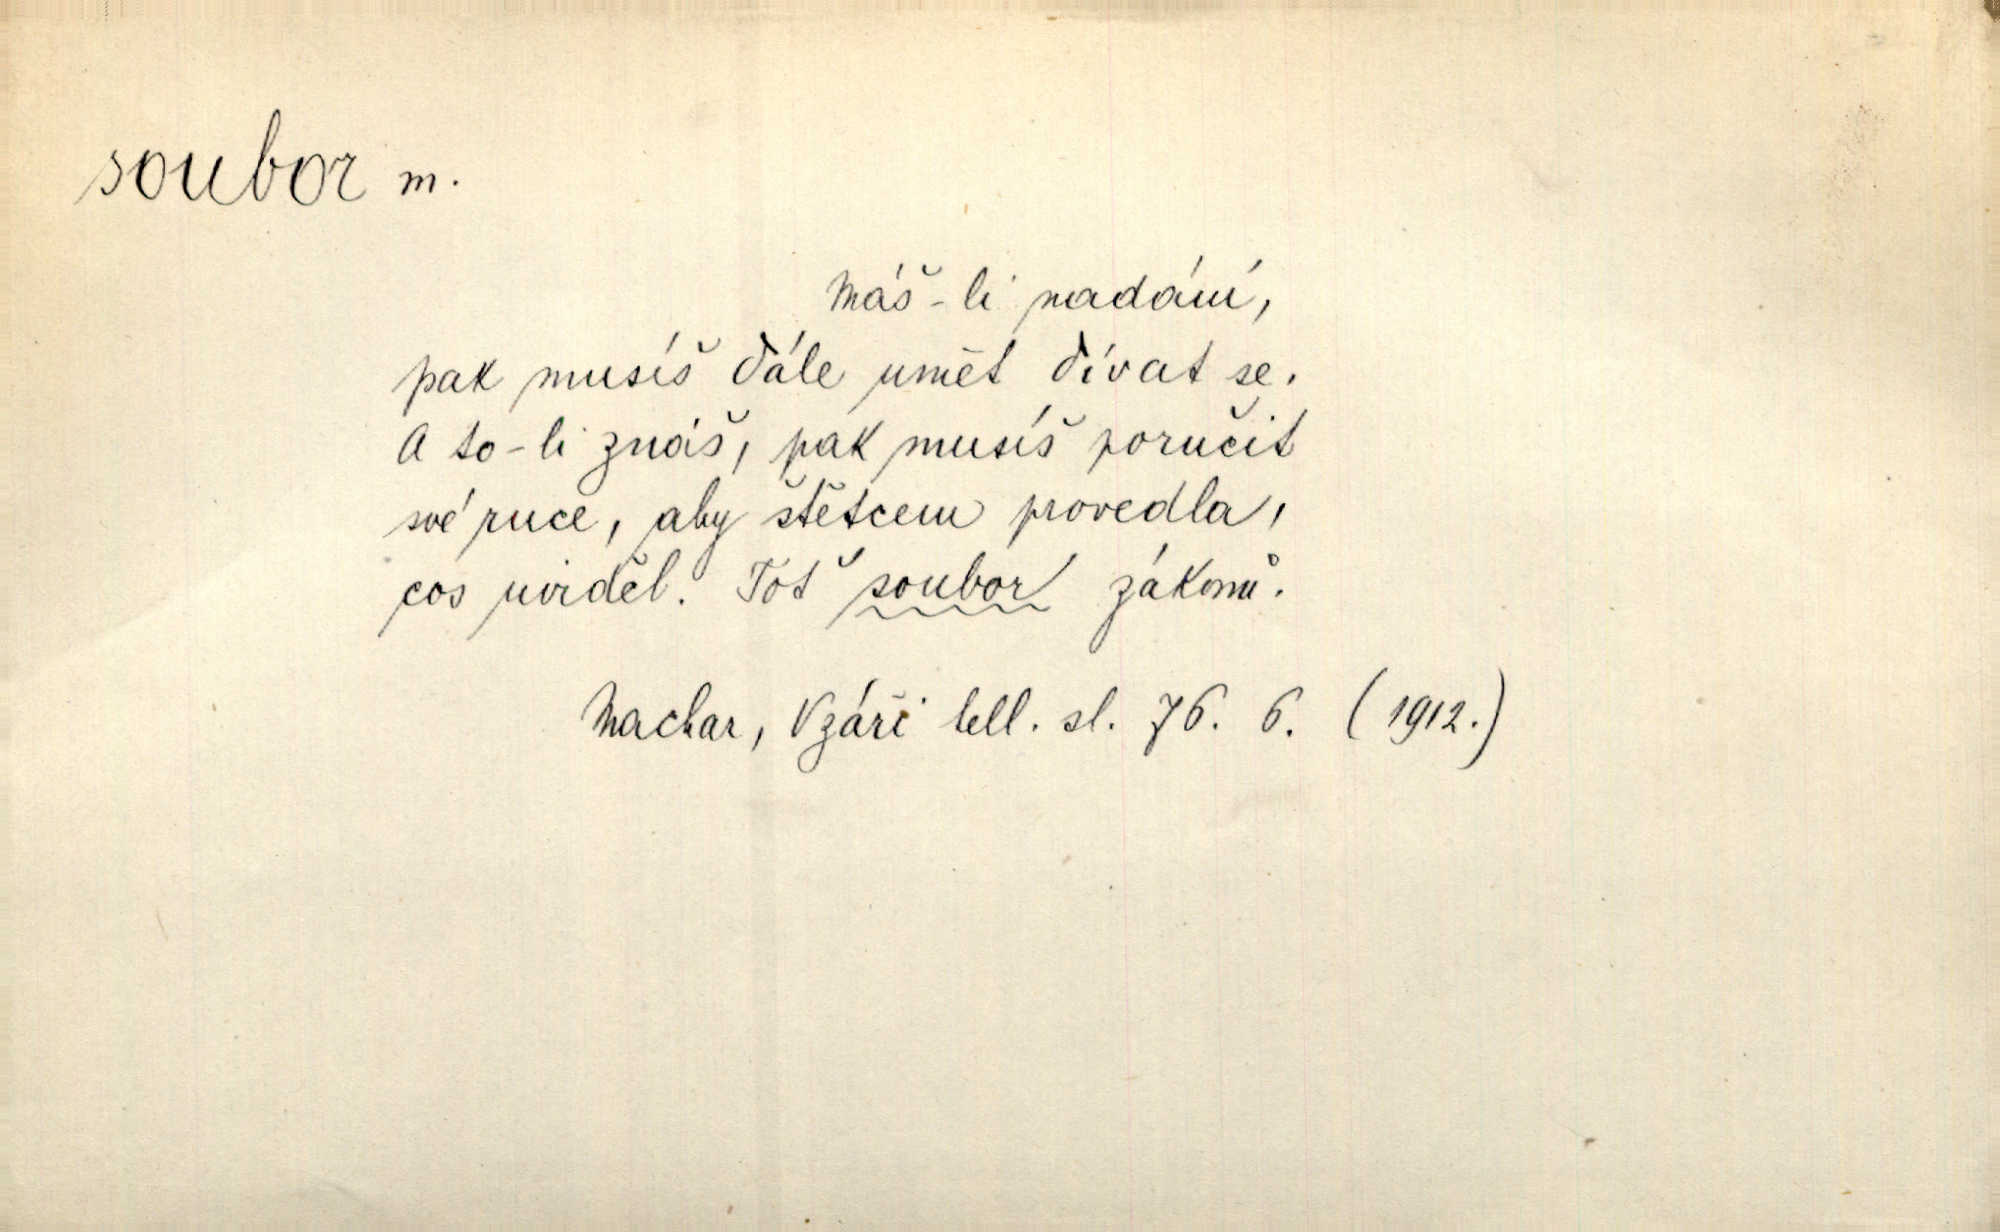 soubor m.
Máš-li nadání,
pak musíš dále umět dívat se.
A to-li znáš, pak musíš poručit
své ruce, aby štětcem provedla,
cos uviděl. Toť soubor zákonů.
Machar, V záři hell. sl. 76. 6. (1912.)